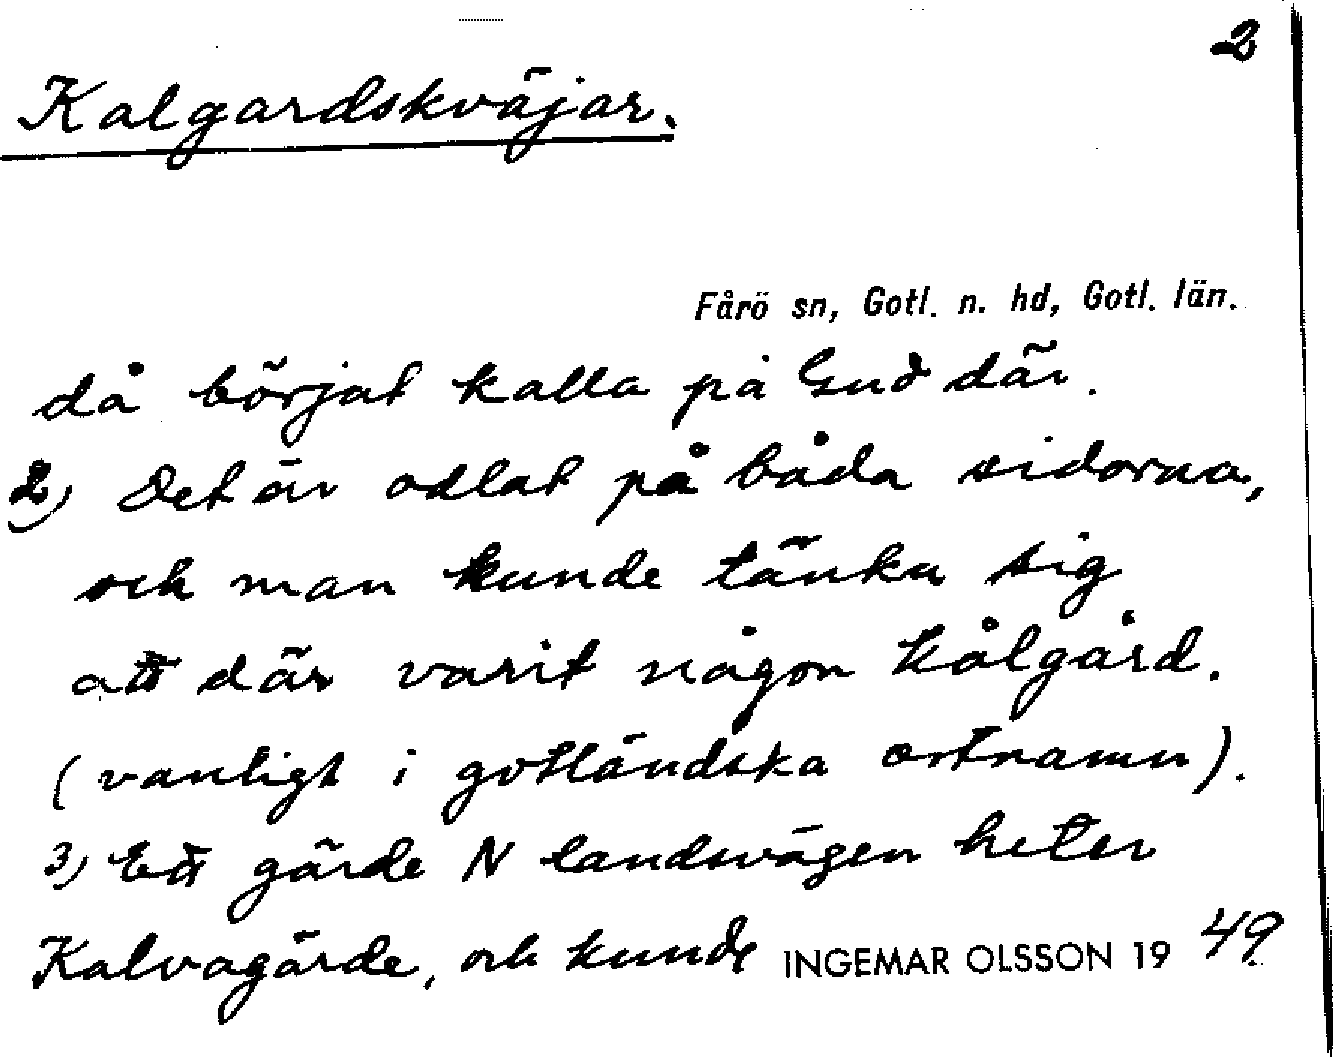 2
Kalgardskväjar.
Fårö sn, Gotl. n. hd, Gotl. län.
då börjat kalla på Gud där.
2) Det är odlat på båda sidorna,
och man kunde tänka sig
att där varit någon kålgård.
(vanligt i gotländska ortnamn).
3) Ett gärde N landsvägen heter
Kalvagärde, och kunde INGEMAR OLSSON 19 49